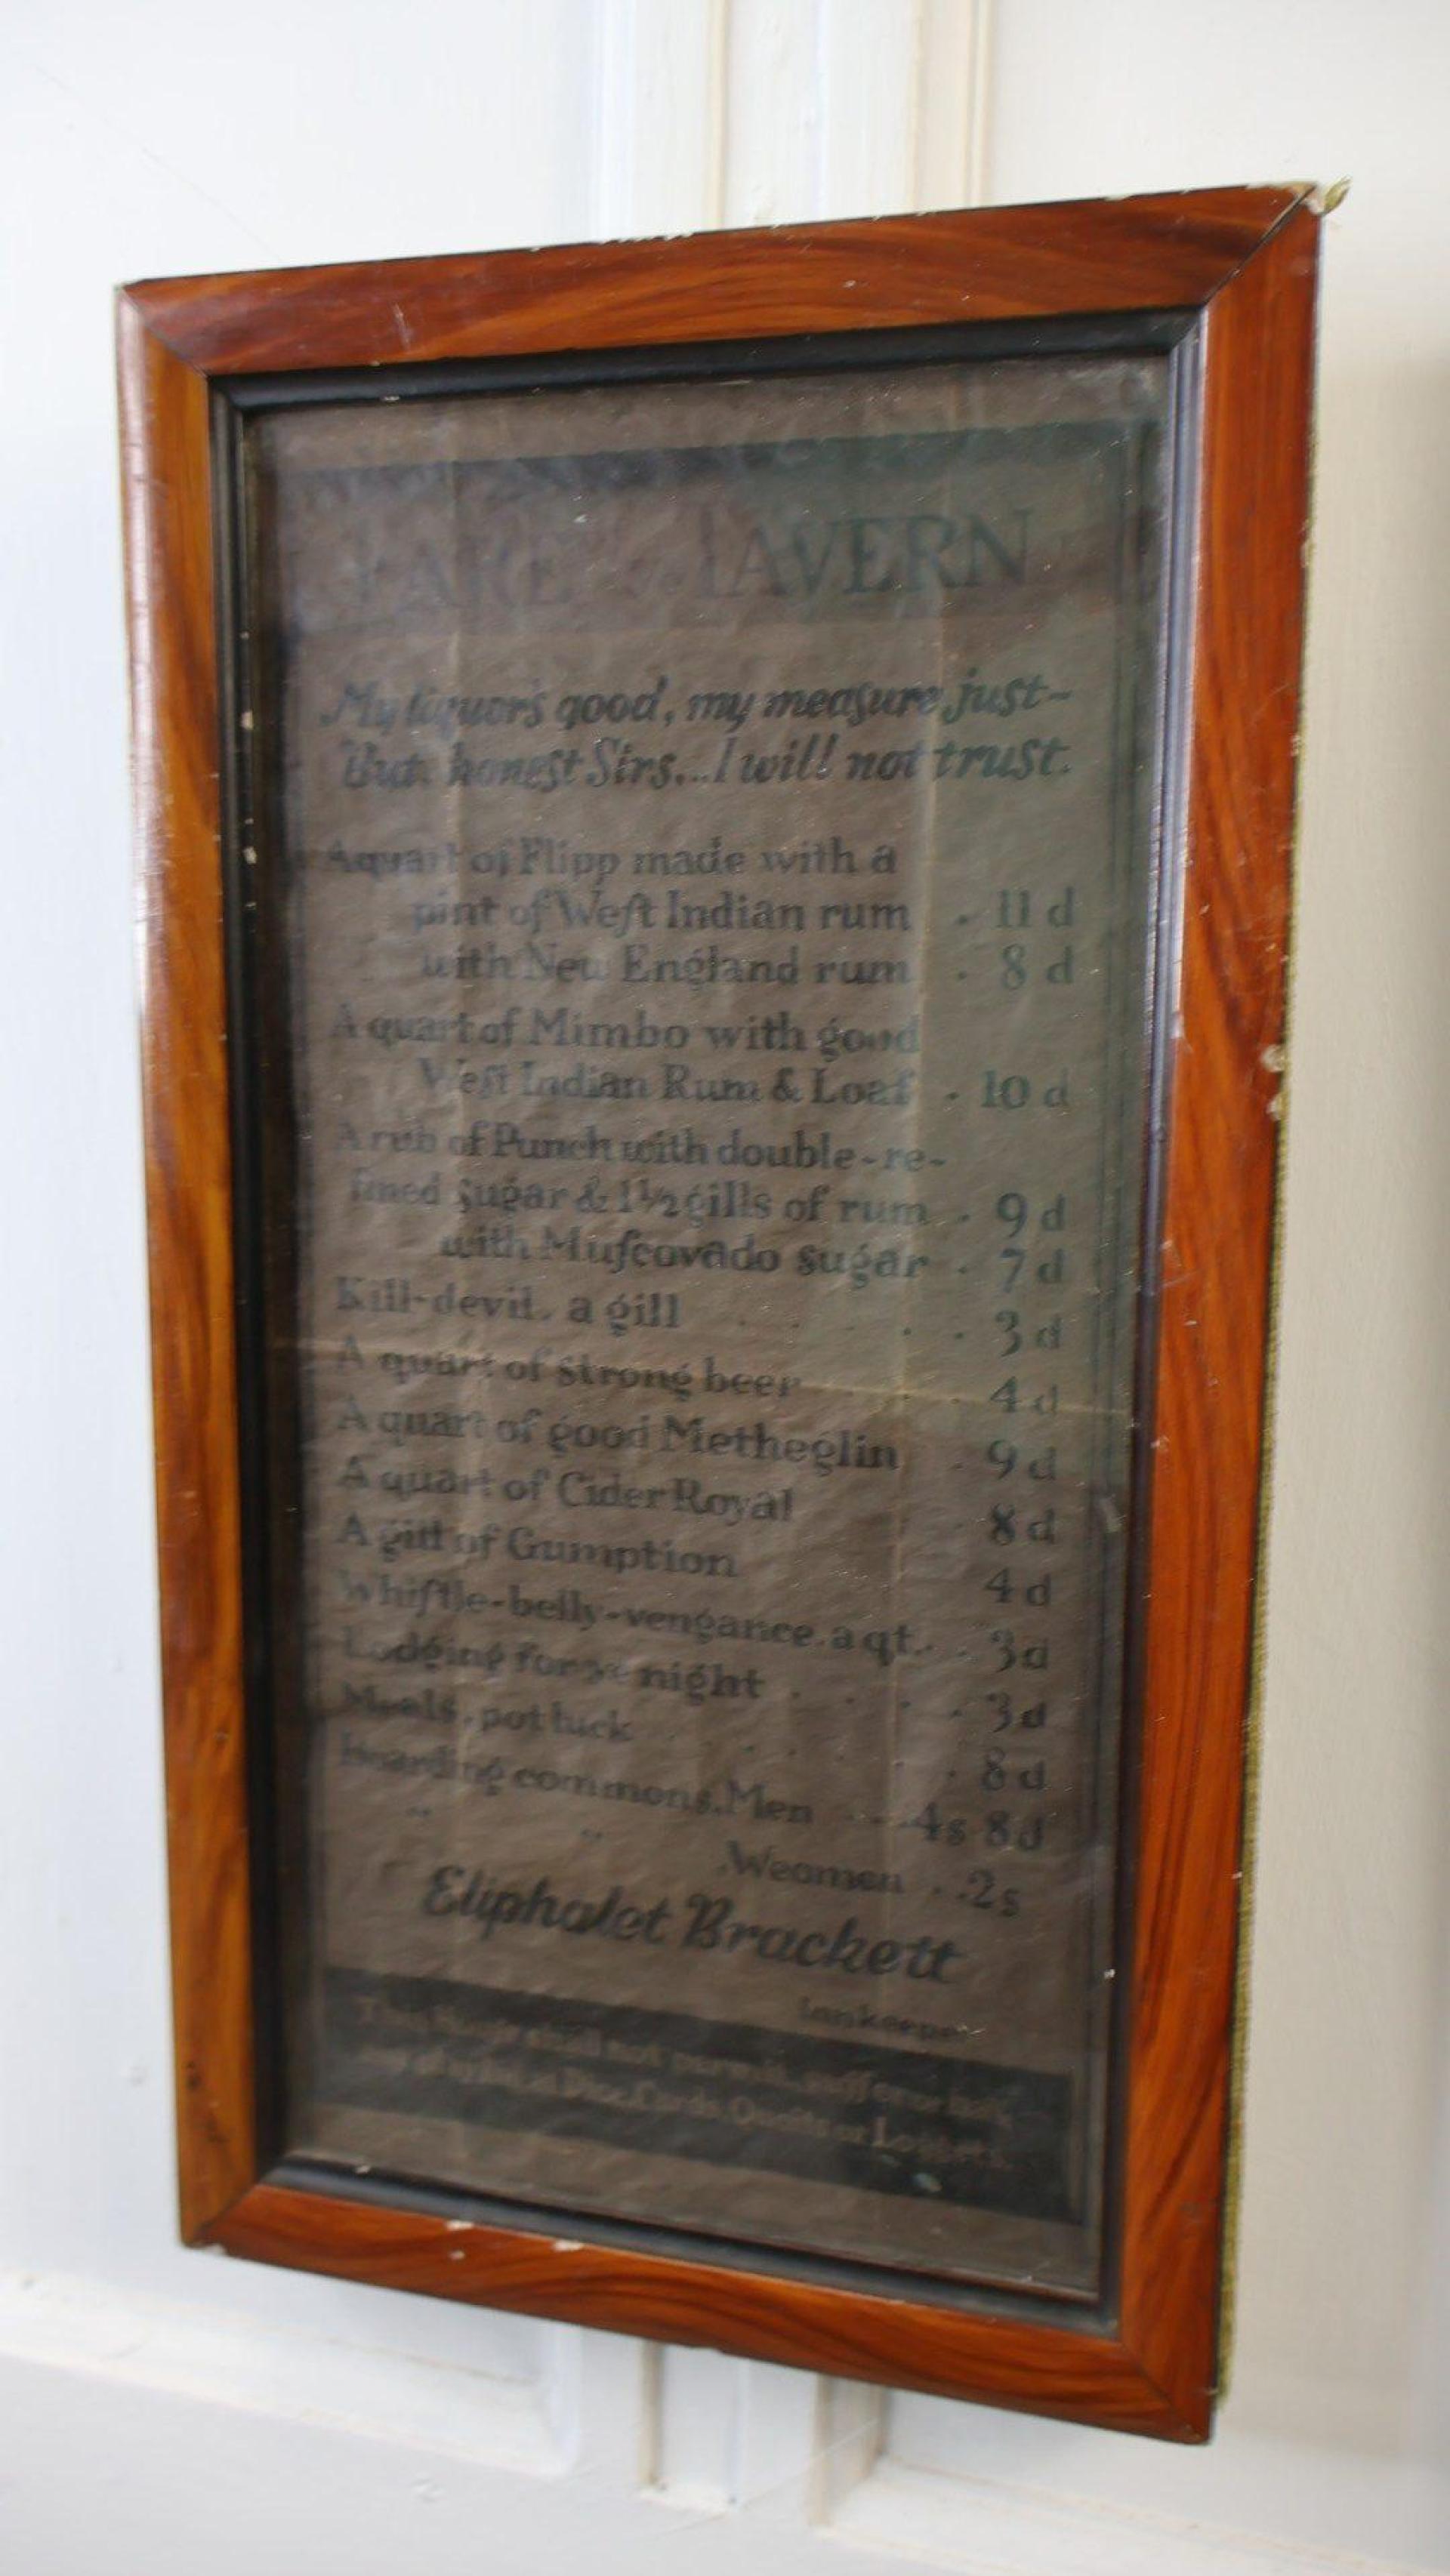 FARE TAVERN
My liquor's good, my measure just-
But, honest Sirs,..I will not trust.
A quart of Flipp made with a
pint of West Indian rum . 11 d
with New England rum . 8 d
A quart of Mimbo with good
West Indian Rum & Loaf . 10 d
A rub of Punch with double-re-
fined sugar & 1½ gills of rum . 9 d
with Muscovado sugar . 7 d
Kill-devil, a gill . . . . . 3 d
A quart of strong beer . . . 4 d
A quart of good Metheglin . 9 d
A quart of Cider Royal . 8 d
A gill of Gumption 4 d
Whistle-belly-vengance, a qt. . 3 d
Lodging for ye night . . . . . 3 d
Meals, pot luck . . . . . 8 d
Boarding commons, Men ....4s 8d
" " , Weomen . .2s
Eliphalet Brackett
Innkeeper
This House shall not permit, suffer or
at Dice, Cards, Quoits or Loggets.